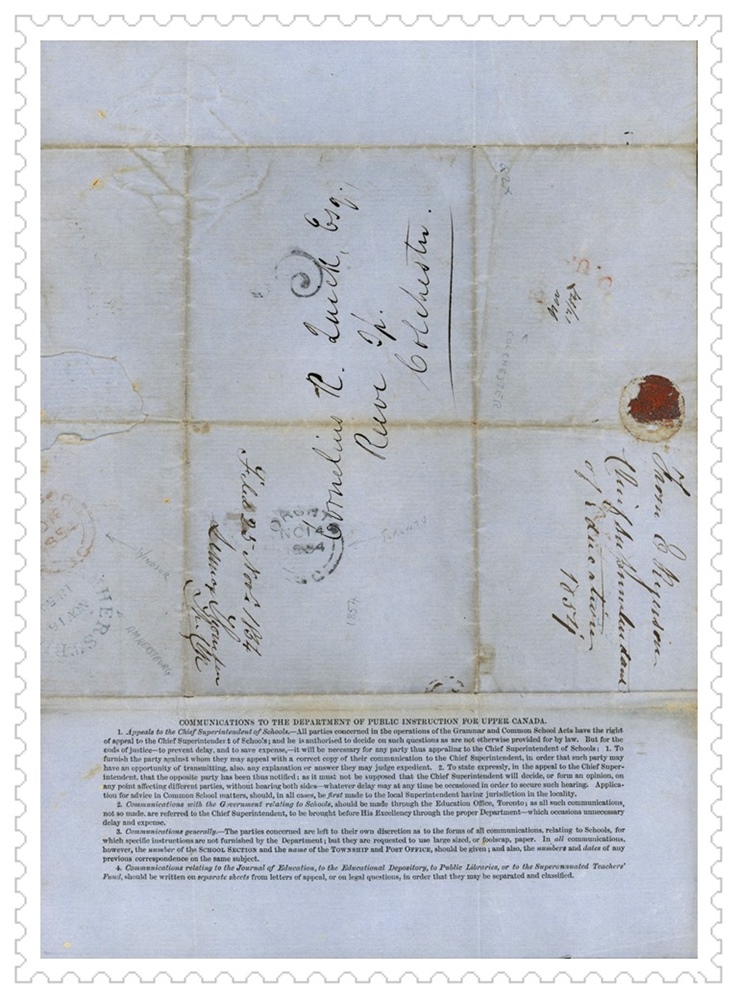 Cornelius R. Quick, Esq.,
Reeve Tp.
Colchester.
Filed 25 Nov. 1854
From E Ryerson
Chief Superintendant
of Education
1854
TORONTO
1854
WINDSOR
AMHERSTBURG
COLCHESTER
COMMUNICATIONS TO THE DEPARTMENT OF PUBLIC INSTRUCTION FOR UPPER CANADA.
1. Appeals to the Chief Superintendent of Schools.—All parties concerned in the operations of the Grammar and Common School Acts have the right
of appeal to the Chief Superintendent of Schools; and he is authorised to decide on such questions as are not otherwise provided for by law. But for the
ends of justice—to prevent delay, and to save expense,—it will be necessary for any party thus appealing to the Chief Superintendent of Schools: 1. To
furnish the party against whom they may appeal with a correct copy of their communication to the Chief Superintendent, in order that such party may
have an opportunity of transmitting, also, any explanation or answer they may judge expedient. 2. To state expressly, in the appeal to the Chief Super-
intendent, that the opposite party has been thus notified; as it must not be supposed that the Chief Superintendent will decide, or form an opinion, on
any point affecting different parties, without hearing both sides—whatever delay may at any time be occasioned in order to secure such hearing. Applica-
tion for advice in Common School matters, should, in all cases, be first made to the local Superintendent having jurisdiction in the locality.
2. Communications with the Government relating to Schools, should be made through the Education Office, Toronto; as all such communications,
not so made, are referred to the Chief Superintendent, to be brought before His Excellency through the proper Department—which occasions unnecessary
delay and expense.
3. Communications generally.—The parties concerned are left to their own discretion as to the forms of all communications, relating to Schools, for
which specific instructions are not furnished by the Department; but they are requested to use large sized, or foolscap, paper. In all communications,
however, the number of the SCHOOL SECTION and the name of the TOWNSHIP and POST OFFICE, should be given; and also, the numbers and dates of any
previous correspondence on the same subject.
4. Communications relating to the Journal of Education, to the Educational Depository, to Public Libraries, or to the Superannuated Teachers'
Fund, should be written on separate sheets from letters of appeal, or on legal questions, in order that they may be separated and classified.